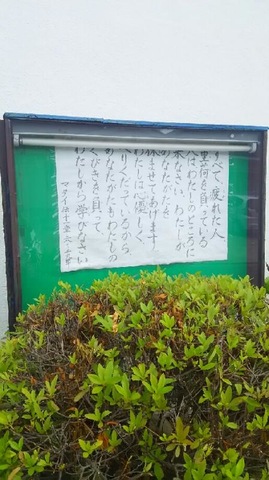 すべて、疲れた人
重荷を負っている
人はわたしのところに
来なさい。わたしが
あなたがたを
休ませてあげます。
わたしは心優しく
へりくだっているから
あなたがたもわたしの
くびきを負って、
わたしから学びなさい
マタイ